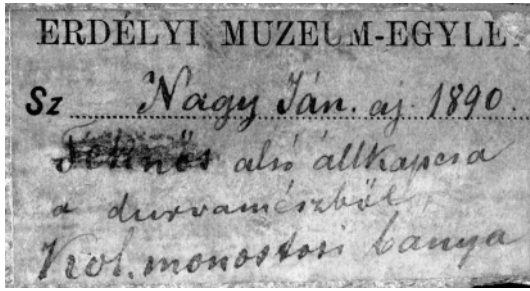 ERDÉLYI MUZEUM-EGYLE
Sz Nagy Ján. aj. 1890.
alsó állkapcsa
a durvamészből
Kol. monostori banya